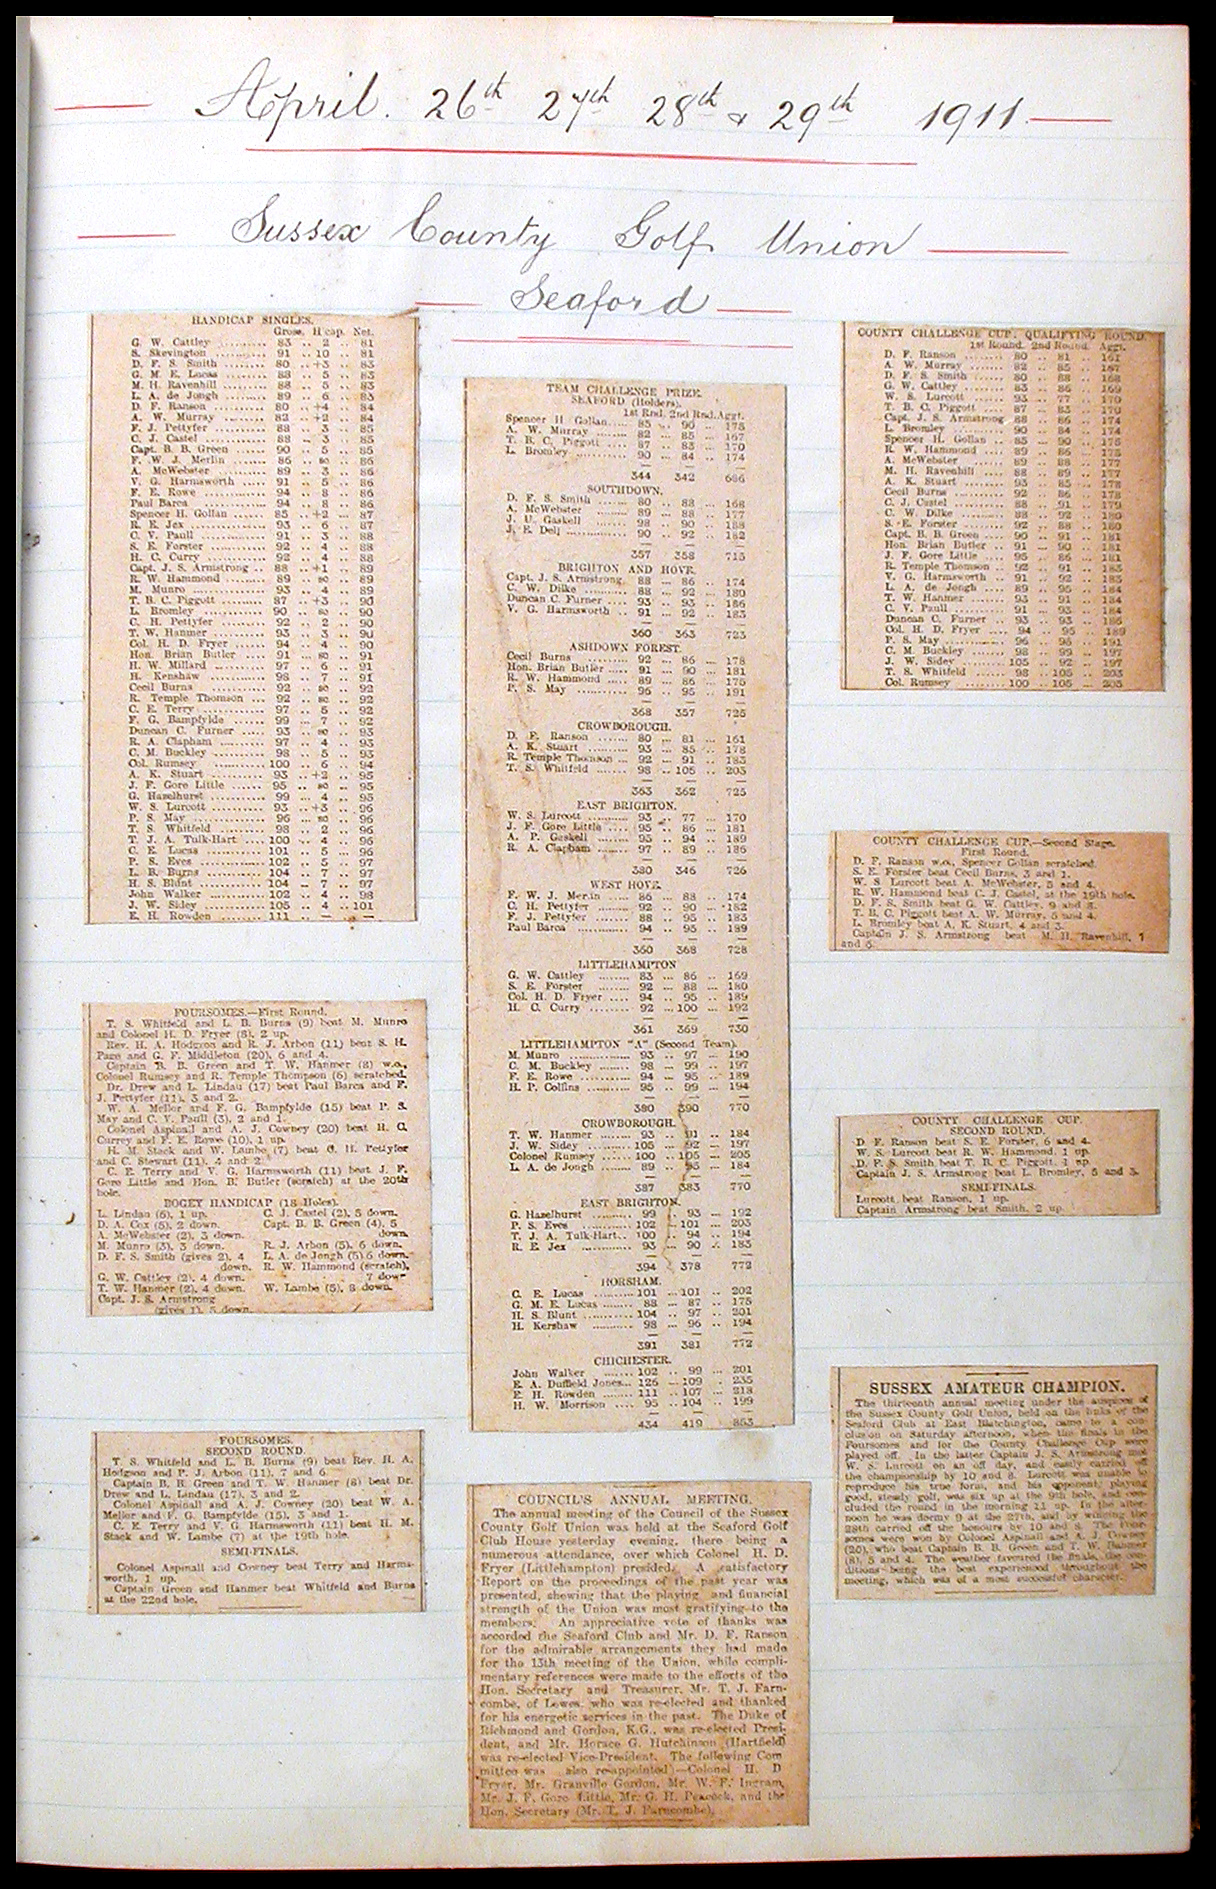 April. 26th 27th 28th & 29th 1911.
Sussex County Golf Union
Seaford
HANDICAP SINGLES.
Gross. H'cap. Net.
G. W. Cattley .......... 83 .. 2 .. 81
S. Skevington .......... 91 .. 10 .. 81
D. F. S. Smith .......... 80 .. +3 .. 83
G. M. E. Lucas .......... 88 .. 5 .. 83
M. H. Ravenhill .......... 88 .. 5 .. 83
L. A. de Jongh .......... 89 .. 6 .. 83
D. F. Ranson .......... 80 .. +4 .. 84
A. W. Murray .......... 82 .. +2 .. 84
F. J. Pettyfer .......... 88 .. 3 .. 85
C. J. Castel .......... 88 .. 3 .. 85
Capt. B. B. Green ...... 90 .. 5 .. 85
F. W. J. Merlin ........ 86 .. sc .. 86
A. McWebster .......... 89 .. 3 .. 86
V. G. Harmsworth ...... 91 .. 5 .. 86
F. E. Rowe .......... 94 .. 8 .. 86
Paul Barca .......... 94 .. 8 .. 86
Spencer H. Gollan ...... 85 .. +2 .. 87
R. E. Jex .......... 93 .. 6 .. 87
C. V. Paull .......... 91 .. 3 .. 88
S. E. Forster .......... 92 .. 4 .. 88
H. C. Curry .......... 92 .. 4 .. 88
Capt. J. S. Armstrong .. 88 .. +1 .. 89
R. W. Hammond ........ 89 .. sc .. 89
M. Munro .......... 93 .. 4 .. 89
T. B. C. Piggott ........ 87 .. +3 .. 90
L. Bromley .......... 90 .. sc .. 90
C. H. Pettyfer .......... 92 .. 2 .. 90
T. W. Hanmer .......... 93 .. 3 .. 90
Col. H. D. Fryer ........ 94 .. 4 .. 90
Hon. Brian Butler ...... 91 .. sc .. 91
H. W. Millard .......... 97 .. 6 .. 91
H. Kenshaw .......... 98 .. 7 .. 91
Cecil Burns .......... 92 .. sc .. 92
R. Temple Thomson .... 92 .. sc .. 92
C. E. Terry .......... 97 .. 5 .. 92
F. G. Bampfylde ...... 99 .. 7 .. 92
Duncan C. Furner ...... 93 .. sc .. 93
R. A. Clapham .......... 97 .. 4 .. 93
C. M. Buckley .......... 98 .. 5 .. 93
Col. Rumsey .......... 100 .. 6 .. 94
A. K. Stuart .......... 93 .. +2 .. 95
J. F. Gore Little ........ 95 .. sc .. 95
G. Hazelhurst .......... 99 .. 4 .. 95
W. S. Lurcott .......... 93 .. +3 .. 96
P. S. May .......... 96 .. sc .. 96
T. S. Whitfeld .......... 98 .. 2 .. 96
T. J. A. Tulk-Hart .... 100 .. 4 .. 96
C. E. Lucas .......... 101 .. 5 .. 96
P. S. Eves .......... 102 .. 5 .. 97
L. B. Burns .......... 104 .. 7 .. 97
H. S. Blunt .......... 104 .. 7 .. 97
John Walker .......... 102 .. 4 .. 98
J. W. Sidey .......... 105 .. 4 .. 101
E. H. Rowden .......... 111 .. — .. —
FOURSOMES.—First Round.
T. S. Whitfeld and L. B. Burns (9) beat M. Munro
and Colonel H. D. Fryer (8), 2 up.
Rev. H. A. Hodgson and R. J. Arbon (11) beat S. H.
Page and G. F. Middleton (20), 6 and 4.
Captain B. B. Green and T. W. Hanmer (8) w.o.,
Colonel Rumsey and R. Temple Thompson (6) scratched.
Dr. Drew and L. Lindau (17) beat Paul Barca and F.
J. Pettyfer (11), 3 and 2.
W. A. Mellor and F. G. Bampfylde (15) beat P. S.
May and C. V. Paull (3), 2 and 1.
Colonel Aspinall and A. J. Cowney (20) beat H. C.
Currey and F. E. Rowe (10), 1 up.
H. M. Stack and W. Lambe (7) beat C. H. Pettyfer
and C. Stewart (11), 4 and 2.
C. E. Terry and V. G. Harmsworth (11) beat J. F.
Gore Little and Hon. B. Butler (scratch) at the 20th
hole.
BOGEY HANDICAP (18 Holes).
L. Lindau (6), 1 up. C. J. Castel (2), 5 down.
D. A. Cox (5), 2 down. Capt. B. B. Green (4), 5
A. McWebster (2), 3 down. down.
M. Munro (3), 3 down. R. J. Arbon (5), 6 down.
D. F. S. Smith (gives 2), 4 L. A. de Jongh (5), 6 down.
down. R. W. Hammond (scratch),
G. W. Cattley (2), 4 down. 7 down
T. W. Hanmer (2), 4 down. W. Lambe (5), 8 down.
Capt. J. S. Armstrong
(gives 1), 5 down.
FOURSOMES.
SECOND ROUND.
T. S. Whitfeld and L. B. Burns (9) beat Rev. H. A.
Hodgson and P. J. Arbon (11), 7 and 6
Captain B. B. Green and T. W. Hanmer (8) beat Dr.
Drew and L. Lindau (17), 3 and 2.
Colonel Aspinall and A. J. Cowney (20) beat W. A.
Mellor and F. G. Bampfylde (15), 3 and 1.
C. E. Terry and V. G. Harmsworth (11) beat H. M.
Stack and W. Lambe (7) at the 19th hole.
SEMI-FINALS.
Colonel Aspinall and Cowney beat Terry and Harms-
worth, 1 up.
Captain Green and Hanmer beat Whitfeld and Burns
at the 22nd hole.
TEAM CHALLENGE PRIZE.
SEAFORD (Holders).
1st Rnd. 2nd Rnd. Aggt.
Spencer H Gollan.... 85 .. 90 .. 175
A. W. Murray ...... 82 .. 85 .. 167
T. B. C. Piggott .... 87 .. 83 .. 170
L. Bromley .......... 90 .. 84 .. 174
344 342 686
SOUTHDOWN.
D. F. S. Smith ...... 80 .. 88 .. 168
A. McWebster ...... 89 .. 88 .. 177
J. U. Gaskell ...... 98 .. 90 .. 188
J. E. Dell .......... 90 .. 92 .. 182
357 358 715
BRIGHTON AND HOVE.
Capt. J. S. Armstrong. 88 .. 86 .. 174
C. W. Dilke ........ 88 .. 92 .. 180
Duncan C. Furner .. 93 .. 93 .. 186
V. G. Harmsworth .. 91 .. 92 .. 183
360 363 723
ASHDOWN FOREST.
Cecil Burns ........ 92 .. 86 .. 178
Hon. Brian Butler .. 91 .. 90 .. 181
R. W. Hammond .... 89 .. 86 .. 175
P. S. May .......... 96 .. 95 .. 191
368 357 725
CROWBOROUGH.
D. F. Ranson ...... 80 .. 81 .. 161
A. K. Stuart ........ 93 .. 85 .. 178
R. Temple Thomson .. 92 .. 91 .. 183
T. S. Whitfeld ...... 98 .. 105 .. 203
363 362 725
EAST BRIGHTON.
W. S. Lurcott ...... 93 .. 77 .. 170
J. F. Gore Little .... 95 .. 86 .. 181
A. P. Gaskell ...... 95 .. 94 .. 189
R. A. Clapham .... 97 .. 89 .. 186
380 346 726
WEST HOVE.
F. W. J. Merlin .... 86 .. 88 .. 174
C. H. Pettyfer ...... 92 .. 90 .. 182
F. J. Pettyfer ...... 88 .. 95 .. 183
Paul Barca ........ 94 .. 95 .. 189
360 368 728
LITTLEHAMPTON
G. W. Cattley ...... 83 .. 86 .. 169
S. E. Forster ...... 92 .. 88 .. 180
Col. H. D. Fryer .... 94 .. 95 .. 189
H. C. Curry ........ 92 .. 100 .. 192
361 369 730
LITTLEHAMPTON "A" (Second Team).
M. Munro .......... 93 .. 97 .. 190
C. M. Buckley ...... 98 .. 99 .. 197
F. E. Rowe .......... 94 .. 95 .. 189
H. P. Collins ........ 95 .. 99 .. 194
380 390 770
CROWBOROUGH.
T. W. Hanmer ...... 93 .. 91 .. 184
J. W. Sidey ........ 105 .. 92 .. 197
Colonel Rumsey .... 100 .. 105 .. 205
L. A. de Jongh ...... 89 .. 95 .. 184
387 383 770
EAST BRIGHTON.
G. Hazelhurst ...... 99 .. 93 .. 192
P. S. Eves .......... 102 .. 101 .. 203
T. J. A. Tulk-Hart.. 100 .. 94 .. 194
R. E. Jex .......... 93 .. 90 .. 183
394 378 772
HORSHAM.
C. E. Lucas ........ 101 .. 101 .. 202
G. M. E. Lucas ...... 88 .. 87 .. 175
H. S. Blunt .......... 104 .. 97 .. 201
H. Kershaw ........ 98 .. 96 .. 194
391 381 772
CHICHESTER.
John Walker ...... 102 .. 99 .. 201
E. A. Duffield Jones... 126 .. 109 .. 235
E. H. Rowden ...... 111 .. 107 .. 218
H. W. Morrison .... 95 .. 104 .. 199
434 419 853
COUNCIL'S ANNUAL MEETING.
The annual meeting of the Council of the Sussex
County Golf Union was held at the Seaford Golf
Club House yesterday evening, there being a
numerous attendance, over which Colonel H. D.
Fryer (Littlehampton) presided. A satisfactory
Report on the proceedings of the past year was
presented, shewing that the playing and financial
strength of the Union was most gratifying to the
members. An appreciative vote of thanks was
accorded the Seaford Club and Mr. D. F. Ranson
for the admirable arrangements they had made
for the 13th meeting of the Union, while compli-
mentary references were made to the efforts of the
Hon. Secretary and Treasurer, Mr. T. J. Farn-
combe, of Lewes, who was re-elected and thanked
for his energetic services in the past. The Duke of
Richmond and Gordon, K.G., was re-elected Presi-
dent, and Mr. Horace G. Hutchinson (Hartfield)
was re-elected Vice-President. The following Com
mittee was also re-appointed:—Colonel H. D
Fryer, Mr. Granville Gordon, Mr. W. F. Ingram,
Mr. J. F. Gore Little, Mr. G. H. Peacock, and the
Hon. Secretary (Mr. T. J. Farncombe).
COUNTY CHALLENGE CUP, QUALIFYING ROUND.
1st Round. 2nd Round. Aggt.
D. F. Ranson ........ 80 .. 81 .. 161
A. W. Murray ........ 82 .. 85 .. 167
D. F. S. Smith ........ 80 .. 88 .. 168
G. W. Cattley ........ 83 .. 86 .. 169
W. S. Lurcott ........ 93 .. 77 .. 170
T. B. C. Piggott .... 87 .. 83 .. 170
Capt. J. S. Armstrong 88 .. 86 .. 174
L. Bromley .......... 90 .. 84 .. 174
Spencer H. Gollan .. 85 .. 90 .. 175
R. W. Hammond .... 89 .. 86 .. 175
A. McWebster ...... 89 .. 88 .. 177
M. H. Ravenhill .... 88 .. 89 .. 177
A. K. Stuart ........ 93 .. 85 .. 178
Cecil Burns ........ 92 .. 86 .. 178
C. J. Castel ........ 88 .. 91 .. 179
C. W. Dilke ........ 88 .. 92 .. 180
S. E. Forster ........ 92 .. 88 .. 180
Capt. B. B. Green .. 90 .. 91 .. 181
Hon. Brian Butler .. 91 .. 90 .. 181
J. F. Gore Little .... 95 .. 86 .. 181
R. Temple Thomson .. 92 .. 91 .. 183
V. G. Harmsworth .. 91 .. 92 .. 183
L. A. de Jongh ...... 89 .. 95 .. 184
T. W. Hanmer ...... 93 .. 91 .. 184
C. V. Paull .......... 91 .. 93 .. 184
Duncan C. Furner .. 93 .. 93 .. 186
Col. H. D. Fryer .... 94 .. 95 .. 189
P. S. May .......... 96 .. 95 .. 191
C. M. Buckley ...... 98 .. 99 .. 197
J. W. Sidey ........ 105 .. 92 .. 197
T. S. Whitfeld ...... 98 .. 105 .. 203
Col. Rumsey ........ 100 .. 105 .. 205
COUNTY CHALLENGE CUP.—Second Stage.
First Round.
D. F. Ranson w.o., Spencer Gollan scratched.
S. E. Forster beat Cecil Burns, 3 and 1.
W. S. Lurcott beat A. McWebster, 5 and 4.
R. W. Hammond beat C. J. Castel, at the 19th hole.
D. F. S. Smith beat G. W. Cattley, 9 and 8.
T. B. C. Piggott beat A. W. Murray, 5 and 4.
L. Bromley beat A. K. Stuart, 4 and 3.
Captain J. S. Armstrong beat M. H. Ravenhill, 7
and 6.
COUNTY CHALLENGE CUP.
SECOND ROUND.
D. F. Ranson beat S. E. Forster, 6 and 4.
W. S. Lurcott beat R. W. Hammond, 1 up.
D. F. S. Smith beat T. B. C. Piggott, 1 up.
Captain J. S. Armstrong beat L. Bromley, 5 and 3.
SEMI-FINALS.
Lurcott beat Ranson, 1 up.
Captain Armstrong beat Smith, 2 up.
SUSSEX AMATEUR CHAMPION.
The thirteenth annual meeting under the auspices of
the Sussex County Golf Union, held on the links of the
Seaford Club at East Blatchington, came to a con-
clusion on Saturday afternoon, when the finals in the
Foursomes and for the County Challenge Cup were
played off. In the latter Captain J. S. Armstrong met
W. S. Lurcott on an off day, and easily carried off
the championship by 10 and 8. Lurcott was unable to
reproduce his true form, and his opponent, playing
good, steady golf, was six up at the 9th hole, and con-
cluded the round in the morning 11 up. In the after-
noon he was dormy 9 at the 27th, and by winning the
28th carried off the honours by 10 and 8. The Four-
somes were won by Colonel Aspinall and A. J. Cowney
(20), who beat Captain B. B. Green and T. W. Hanmer
(8), 5 and 4. The weather favoured the finals, the con-
ditions being the best experienced throughout the
meeting, which was of a most successful character.